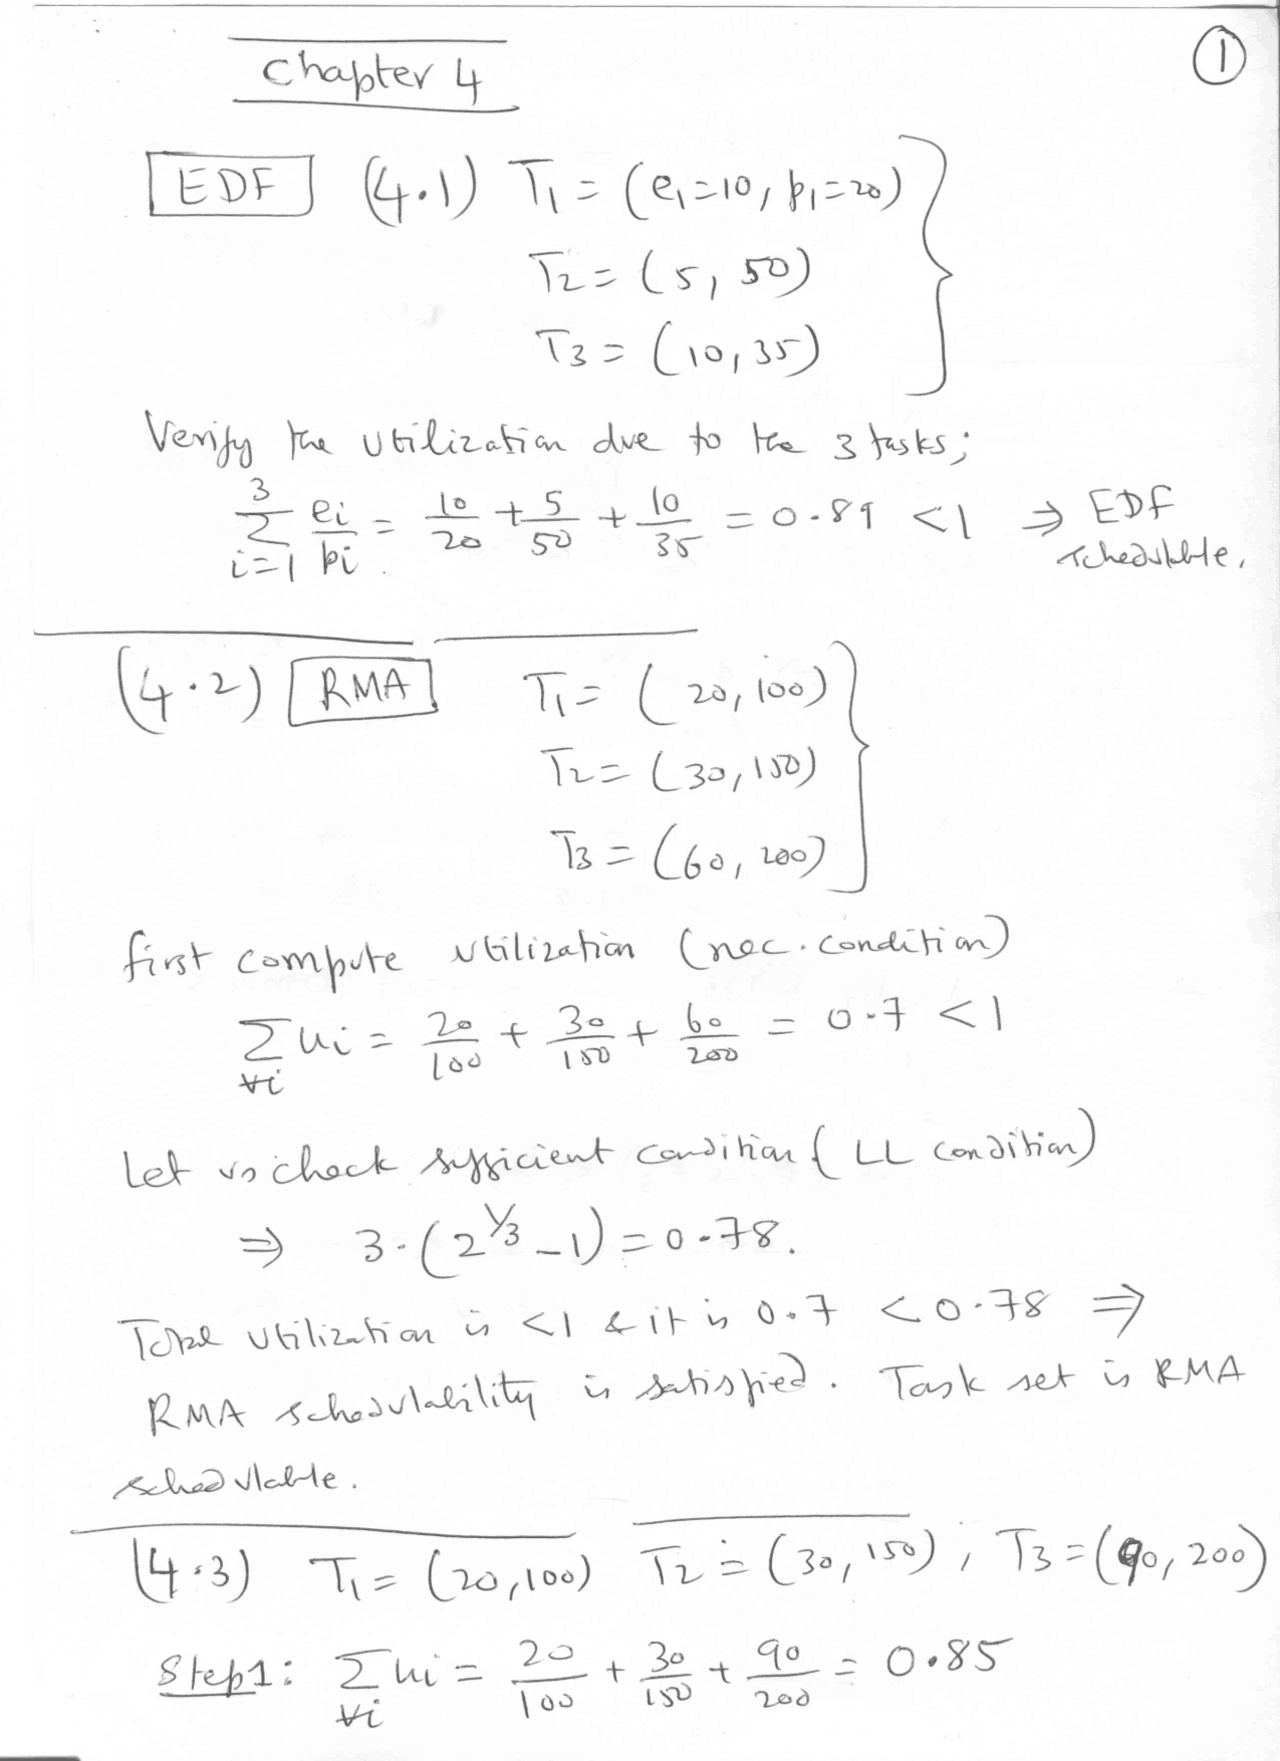 ①
Chapter 4
EDF (4.1) T1 = (e1=10, p1=20)
T2 = (5, 50)
T3 = (10, 35)
Verify the utilization due to the 3 tasks;
3∑i=1 ei/pi = 10/20 + 5/50 + 10/35 = 0.89 < 1 ⇒ EDF
schedulable.
(4.2) RMA T1 = (20, 100)
T2 = (30, 150)
T3 = (60, 200)
first compute utilization (nec. condition)
∑∀i ui = 20/100 + 30/150 + 60/200 = 0.7 < 1
Let us check sufficient condition (LL condition)
⇒ 3.(2^1/3 - 1) = 0.78.
Total utilization is <1 & it is 0.7 < 0.78 ⇒
RMA schedulability is satisfied. Task set is RMA
schedulable.
(4.3) T1 = (20, 100) T2 = (30, 150); T3 = (90, 200)
Step1: ∑∀i ui = 20/100 + 30/150 + 90/200 = 0.85